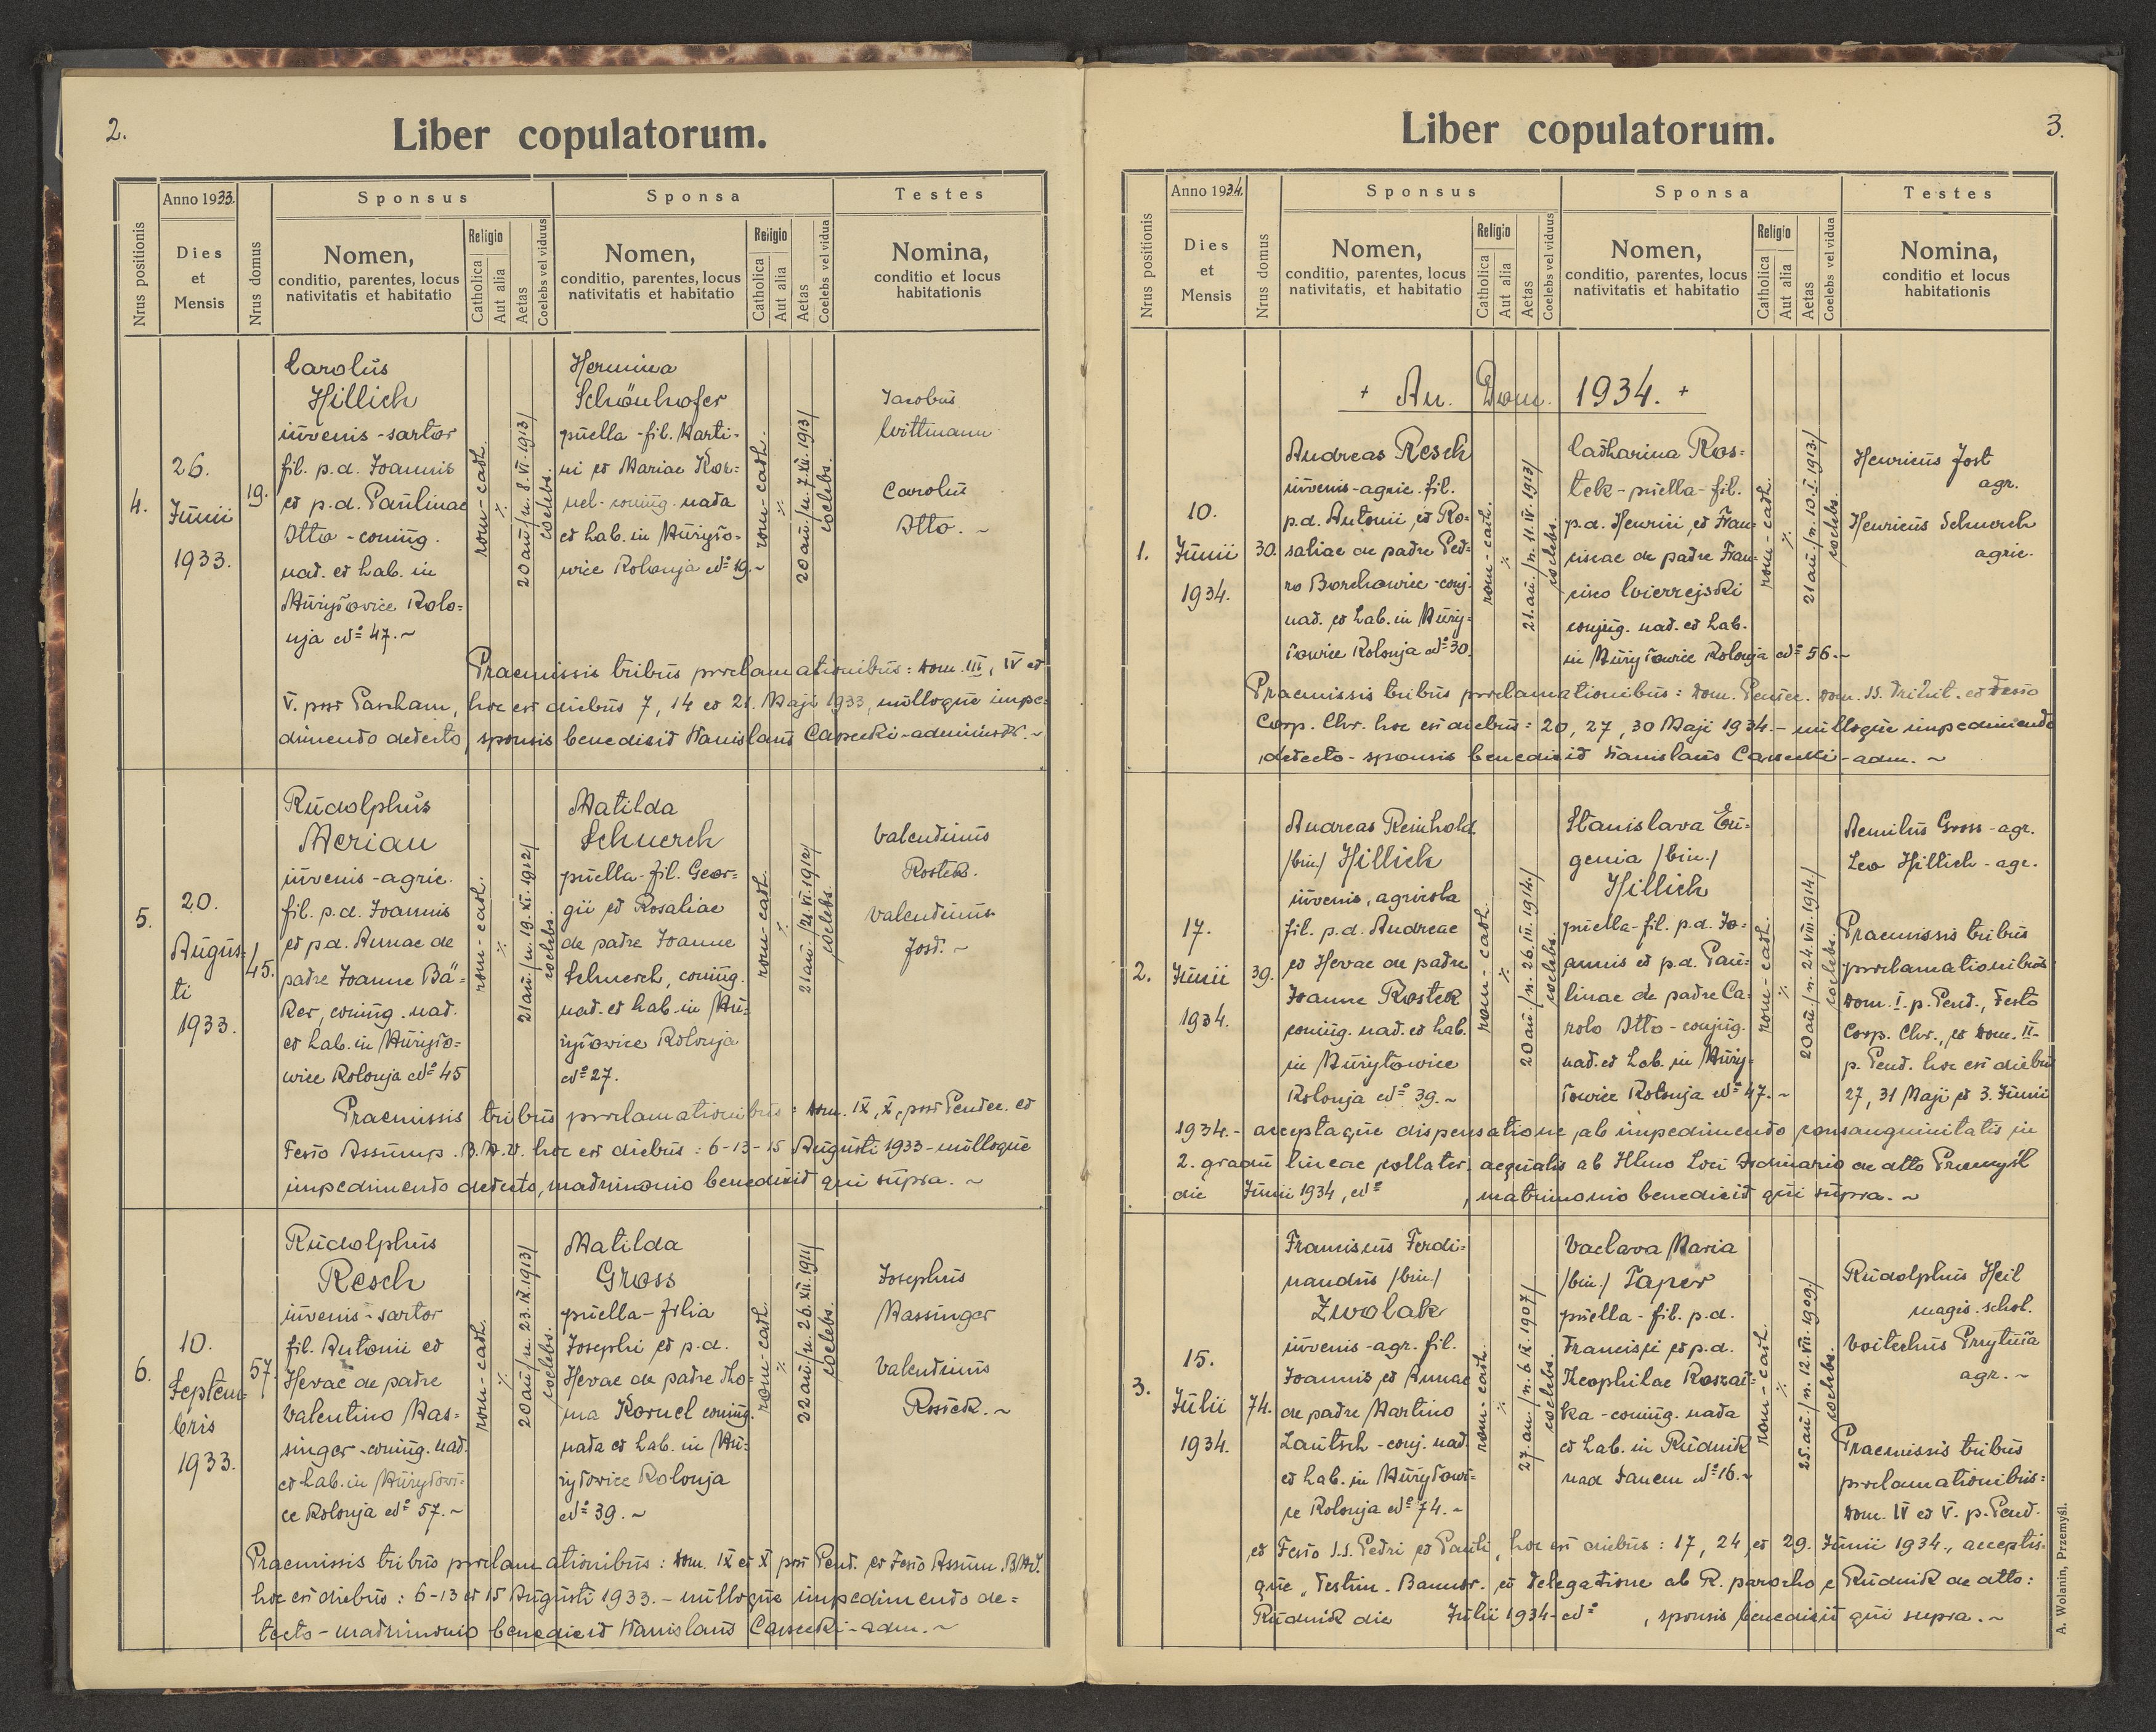 2.
Liber copulatorum.
Nrus positionis
Anno 1933.
Dies
et
Mensis
Nrus domus
Sponsus
Nomen,
conditio, parentes, locus
nativitatis et habitatio
Religio
Catholica
Aut alia
Aetas
Coelebs vel viduus
Sponsa
Nomen,
conditio, parentes, locus
nativitatis et habitatio
Religio
Catholica
Aut alia
Aetas
Coelebs vel vidua
Testes
Nomina,
conditio et locus
habitationis
4.
26.
Junii
1933.
19.
Carolus
Hillich
iuvenis - sartor
fil. p.d. Joannis
et p.d. Paulinae
Otto - coniug.
nat. et hab. in
Murytowice Kolo=
nja No 47. ~
rom - cath.
20 an. /n. 8. VI. 1913/
coelebs.
Hermina
Schönhofer
puella - fil. Marti=
ni et Mariae Kor=
nel - coniug. nata
et hab. in Muryto=
wice Kolonja No 19. ~
rom - cath.
20 an. /n. 7. XII. 1913/
coelebs.
Jacobus
Wittmann
Carolus
Otto. ~
Praemissis tribus proclamationibus: Dom. III, IV et
V. post Pascham, hoc est diebus 7, 14 et 21. Maji 1933, nulloque impe=
dimento detecto, sponsis benedixit Stanislaus Capecki - administr. ~
5.
20.
Augus=
ti
1933.
45.
Rudolphus
Merian
iuvenis - agric.
fil. p.d. Joannis
et p.d. Annae de
patre Joanne Bä=
ker, coniug. nat.
et hab. in Muryto=
wice Kolonja No 45
rom - cath.
21 an. /n. 19. XI. 1912/
coelebs.
Matilda
Schuerch
puella - fil. Geor=
gii et Rosaliae
de patre Joanne
Schuerch, coniug.
nat. et hab. in Mu=
rytowice Kolonja
No 27.
rom - cath.
21 an. /21. VI. 1912/
coelebs.
Valentinus
Rostek.
Valentinus
Jost. ~
Praemissis tribus proclamationibus: Dom. IX, X, post Pentec. et
Festo Assump. B.M.V. hoc est diebus: 6-13-15 Augusti 1933 - nulloque
impedimento detecto, matrimonio benedixit qui supra. ~
6.
10.
Septem=
bris
1933.
57.
Rudolphus
Resch
iuvenis - sartor
fil. Antonii et
Hevae de patre
Valentino Mas=
singer - coniug. nat.
et hab. in Murytowi=
ce Kolonja No 57. ~
rom - cath.
20 an. /n. 23. IX. 1913/
coelebs.
Matilda
Gross
puella - filia
Josephi et p.d.
Hevae de patre Tho=
ma Kornel coniug.
nata et hab. in Mu=
rytowice Kolonja
No 39. ~
rom - cath.
22 an. /n. 26. XII. 1911/
coelebs.
Josephus
Massinger
Valentinus
Rostek. ~
Praemissis tribus proclamationibus: Dom. IX et X post Pent. et Festo Assum. B.M.V.
hoc est diebus: 6-13 et 15 Augusti 1933. - nulloque impedimento de=
tecto - matrimonio benedixit Stanislaus Capecki - adm. ~
3.
Liber copulatorum.
Nrus positionis
Anno 1934.
Dies
et
Mensis
Nrus domus
Sponsus
Nomen,
conditio, parentes, locus
nativitatis, et habitatio
Religio
Catholica
Aut alia
Aetas
Coelebs vel viduus
Sponsa
Nomen,
conditio, parentes, locus
nativitatis et habitatio
Religio
Catholica
Aut alia
Aetas
Coelebs vel vidua
Testes
Nomina,
conditio et locus
habitationis
+ An. Dom. 1934. +
1.
10.
Junii
1934.
30.
Andreas Resch
iuvenis - agric. fil.
p.d. Antonii, et Ro=
saliae de patre Pet=
ro Borchowiec - conj.
nat. et hab. in Mury=
towice Kolonja No 30.
rom - cath.
21. an. /n. 11. IV. 1913/
coelebs.
Catharina Ros=
tek - puella - fil.
p.d. Henrici, et Fran=
ciscae de patre Fran=
cisco
conjug. nat. et hab.
in Murytowice Kolonja No 56. ~
rom - cath.
21 an. /n. 10. I. 1913/
coelebs.
Henricus Jost
agr.
Henricus Schuerch
agric.
Praemissis tribus proclamationibus: Dom. Pentec. Dom. SS. Trinit. et Festo
Corp. Chr. hoc est diebus: 20, 27, 30 Maji 1934. - nulloque impedimento
detecto - sponsis benedixit Stanislaus Capecki - adm. ~
2.
17.
Junii
1934.
39.
Andreas Reinhold
/bin./ Hillich
iuvenis, agricola
fil. p.d. Andreae
et Hevae de patre
Joanne Rostek
coniug. nat. et hab.
in Murytowice
Kolonja No 39. ~
rom - cath.
20 an. /n. 26. III. 1914./
coelebs.
Stanislava Eu=
genia /bin./
Hillich
puella - fil. p.d. Jo=
annis et p.d. Pau=
linae de patre Ca=
rolo Otto - conjug.
nat. et hab. in Mury=
towice Kolonja No 47. ~
rom - cath.
20 an. /n. 24. VIII. 1914./
coelebs.
Aemilius Gross - agr.
Leo Hillich - agr.
Praemissis tribus
proclamationibus
Dom. I. p. Pent., Festo
Corp. Chr., et Dom. II-
p. Pent. hoc est diebus
27, 31 Maji et 3. Junii
1934. - acceptaque dispensatione ab impedimento consanguinitatis in
2. gradu lineae collater. aequalis ab Illmo Loci Ordinario de dtto Przemyśl
die Junii 1934, No , matrimonio benedixit qui supra. ~
3.
15.
Julii
1934.
74.
Franciscus Ferdi=
nandus /bin./
Zwolak
iuvenis - agr. fil.
Joannis et Annae
de patre Martino
Lautsch - conj. nat.
et hab. in Murytowi=
ce Kolonja No 74. ~
rom - cath.
27. an. /n. 6. IX. 1907/
coelebs.
Vaclava Maria
/bin./ Taper
puella - fil. p.d.
Francisci et p.d.
Theophilae Koszał=
ka - coniug. nata
et hab. in Rudnik
nad Sanem No 16. ~
rom - cath.
25. an. /n. 12. VII. 1909/
coelebs.
Rudolphus Heil
magis. schol.
Voitechus Przytuła
agr. ~
Praemissis tribus
proclamationibus=
Dom. IV et V. p. Pent.
et Festo S.S. Petri et Pauli, hoc est diebus: 17, 24 et 29. Junii 1934., acceptis=
que "Testim. Bannor. et delegatione ab R. parocho e Rudnik de dtto:
Rudnik die Julii 1934 - No , sponsis benedixit qui supra. ~
A. Wolanin, Przemyśl.